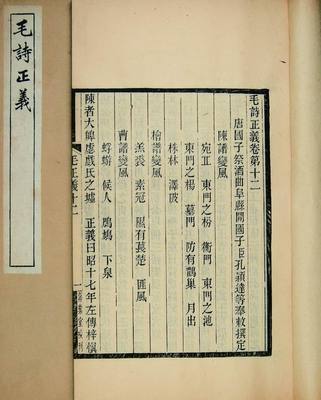 毛詩正義
毛詩正義卷第十二
唐國子祭酒曲阜縣開國子臣孔穎達等奉敕撰定
陳譜變風
宛丘　東門之枌　衡門　東門之池
東門之楊　墓門　防有鵲巢　月出
株林　澤陂
檜譜變風
羔裘　素冠　隰有萇楚　匪風
曹譜變風
蜉蝣　候人　鳲鳩　下泉
陳者大皥虙戲氏之墟　正義曰昭十七年左傳梓愼
毛正義十二
一